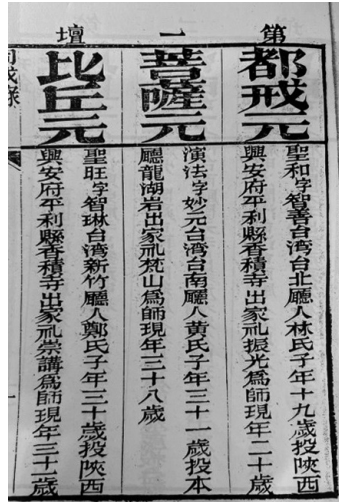 第一壇
都戒元
聖和字智善台湾台北廳人林氏子年十九歲投陝西
興安府平利縣香積寺出家礼振光為師現年二十歲
菩薩元
演法字妙元台湾台南廳人黃氏子年三十一歲投本
廳龍湖岩出家礼梵山為師現年三十八歲
比丘元
聖旺字智琳台湾新竹廳人鄭氏子年三十歲投陝西
興安府平利縣香積寺出家礼崇講為師現年三十一歲
同戒錄